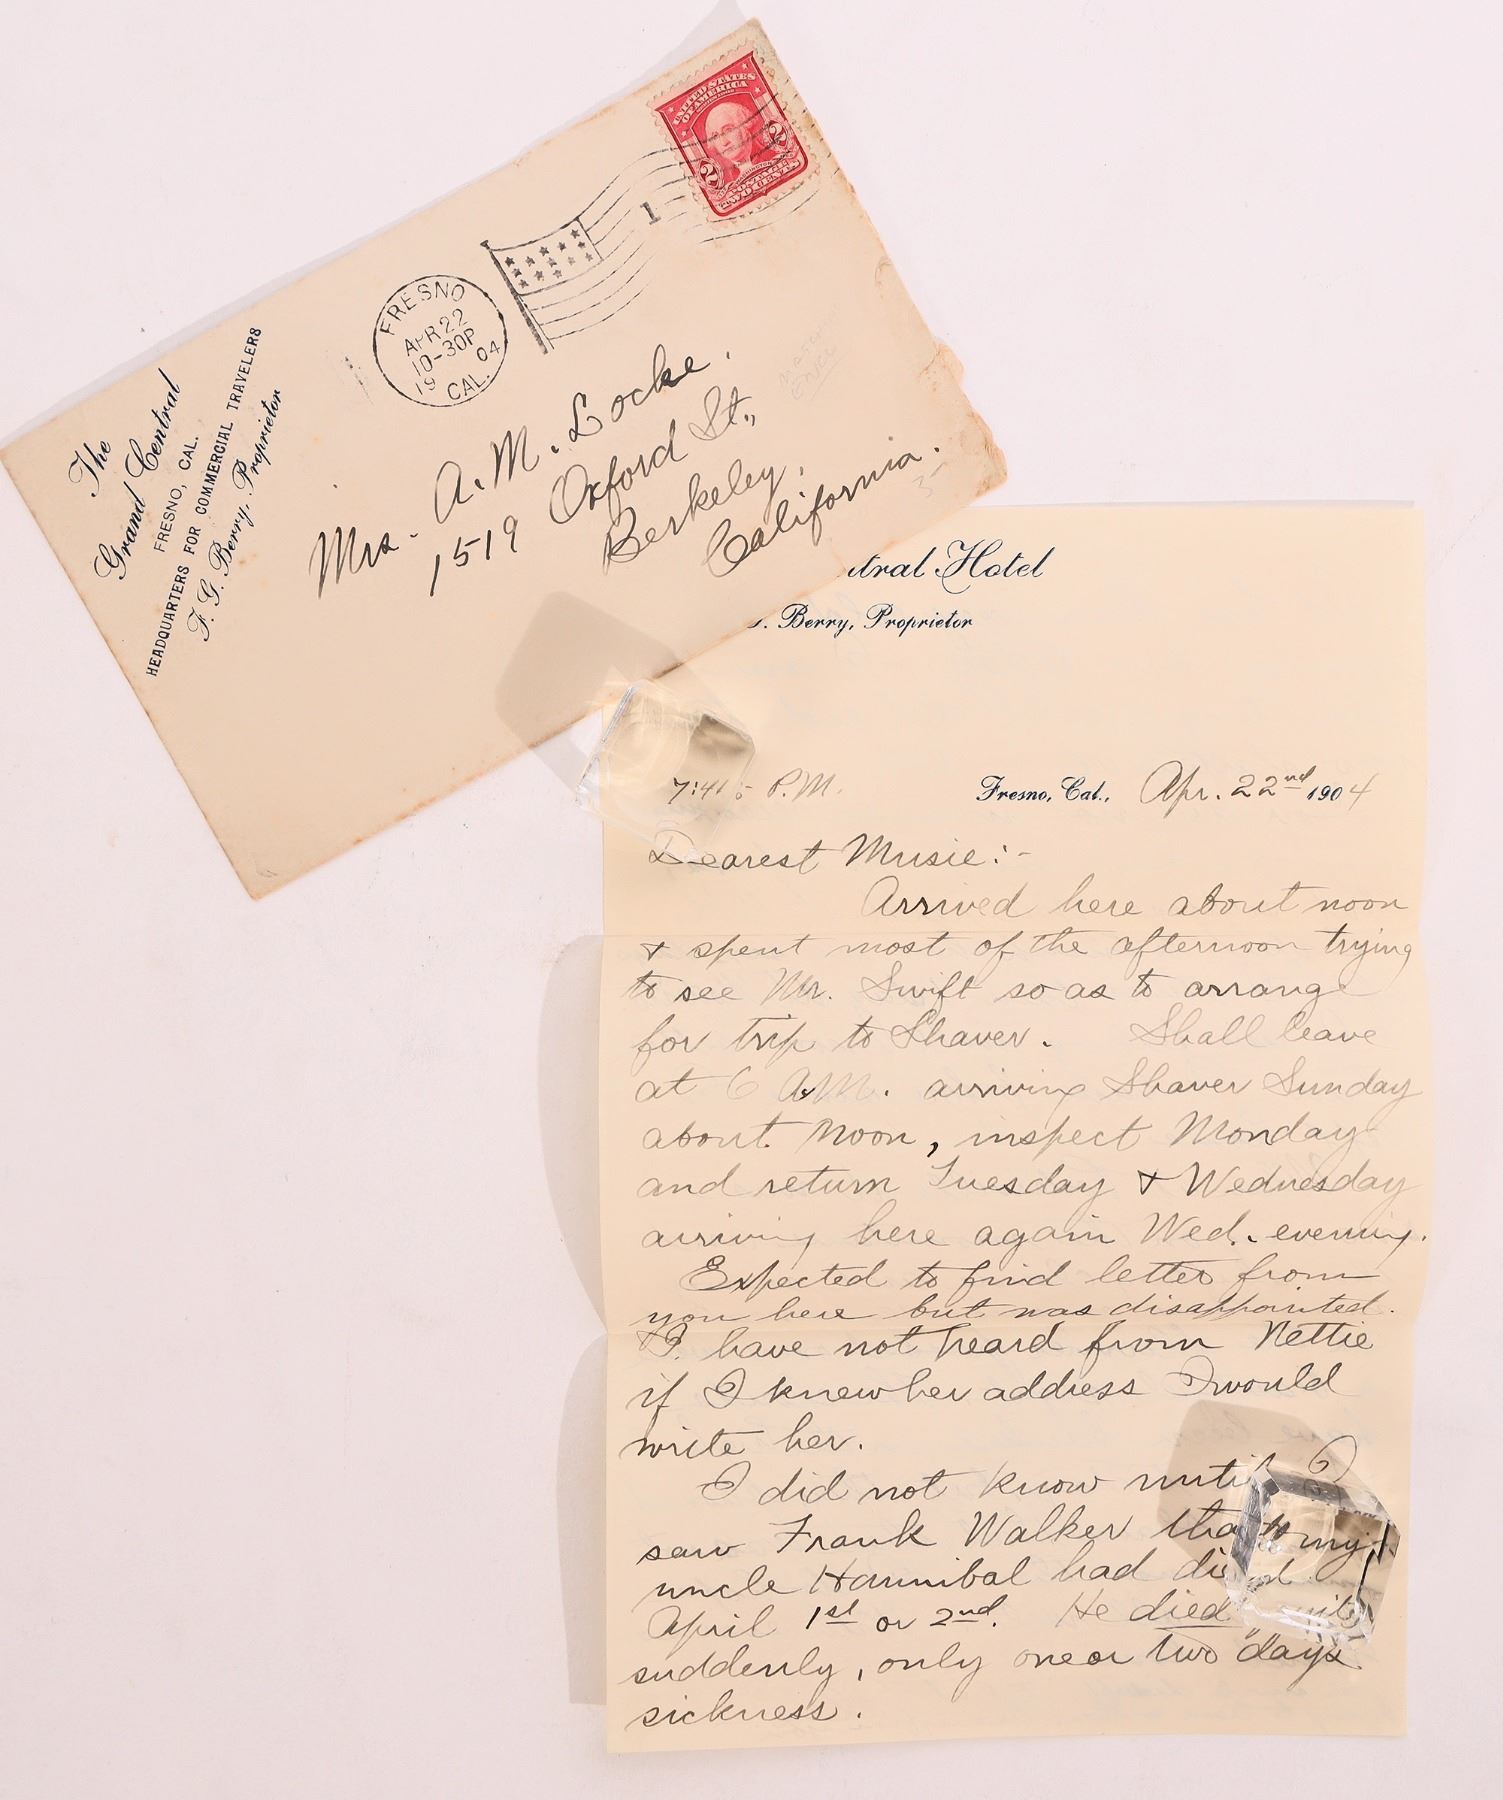 UNITED STATES
OF AMERICA
2 2
The
Grand Central
FRESNO, CAL.
HEADQUARTERS FOR COMMERCIAL TRAVELERS
F. G. Berry, Proprietor
FRESNO
APR 22
10-30P
19 04
CAL.
1
Mrs. A. M. Locke.
1519 Oxford St.,
Berkeley,
California.
ntral Hotel
Berry, Proprietor
7:45 P.M. Fresno, Cal., Apr. 22nd 1904
Dearest Musie:-
Arrived here about noon
& spent most of the afternoon trying
to see Mr. Swift so as to arrange
for trip to Shaver. Shall leave
at 6 A.M. arriving Shaver Sunday
about noon, inspect Monday
and return Tuesday & Wednesday
arriving here again Wed. evening.
Expected to find letter from
you here but was disappointed.
I have not heard from Nettie
if I knew her address I would
write her.
I did not know until I
saw Frank Walker that my
uncle Hannibal had died
April 1st or 2nd. He died quite
suddenly, only one or two days
sickness.